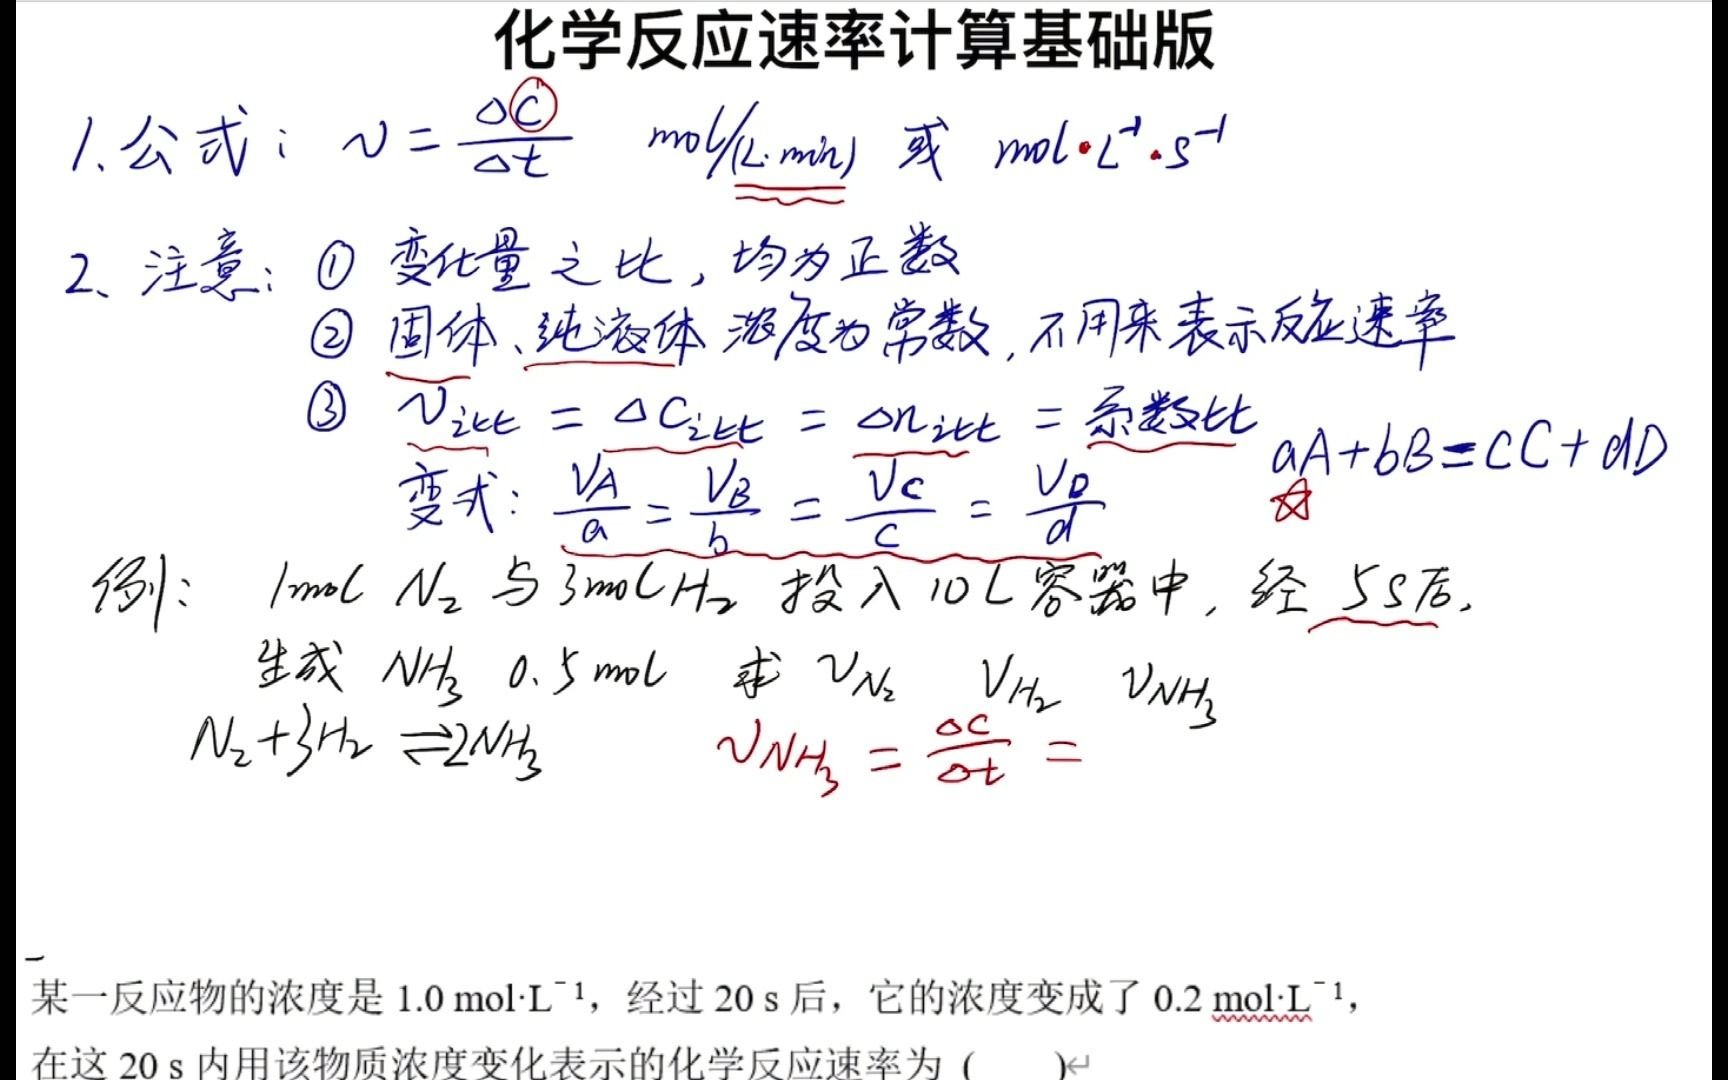 化学反应速率计算基础版
1.公式: v = Δc/Δt mol/(L·min) 或 mol·L⁻¹·s⁻¹
2、注意: ① 变化量之比,均为正数
② 固体、纯液体浓度为常数,不用来表示反应速率
③ v之比 = ΔC之比 = Δn之比 = 系数比
aA+bB=cC+dD
变式: VA/a = VB/b = VC/c = VD/d
例: 1mol N₂ 与 3mol H₂ 投入 10L 容器中, 经 5s后,
生成 NH₃ 0.5mol 求 vN₂ vH₂ vNH₃
N₂+3H₂ ⇌ 2NH₃ vNH₃ = Δc/Δt =
某一反应物的浓度是 1.0 mol·L⁻¹,经过 20 s 后,它的浓度变成了 0.2 mol·L⁻¹,
在这 20 s 内用该物质浓度变化表示的化学反应速率为 ( )↵